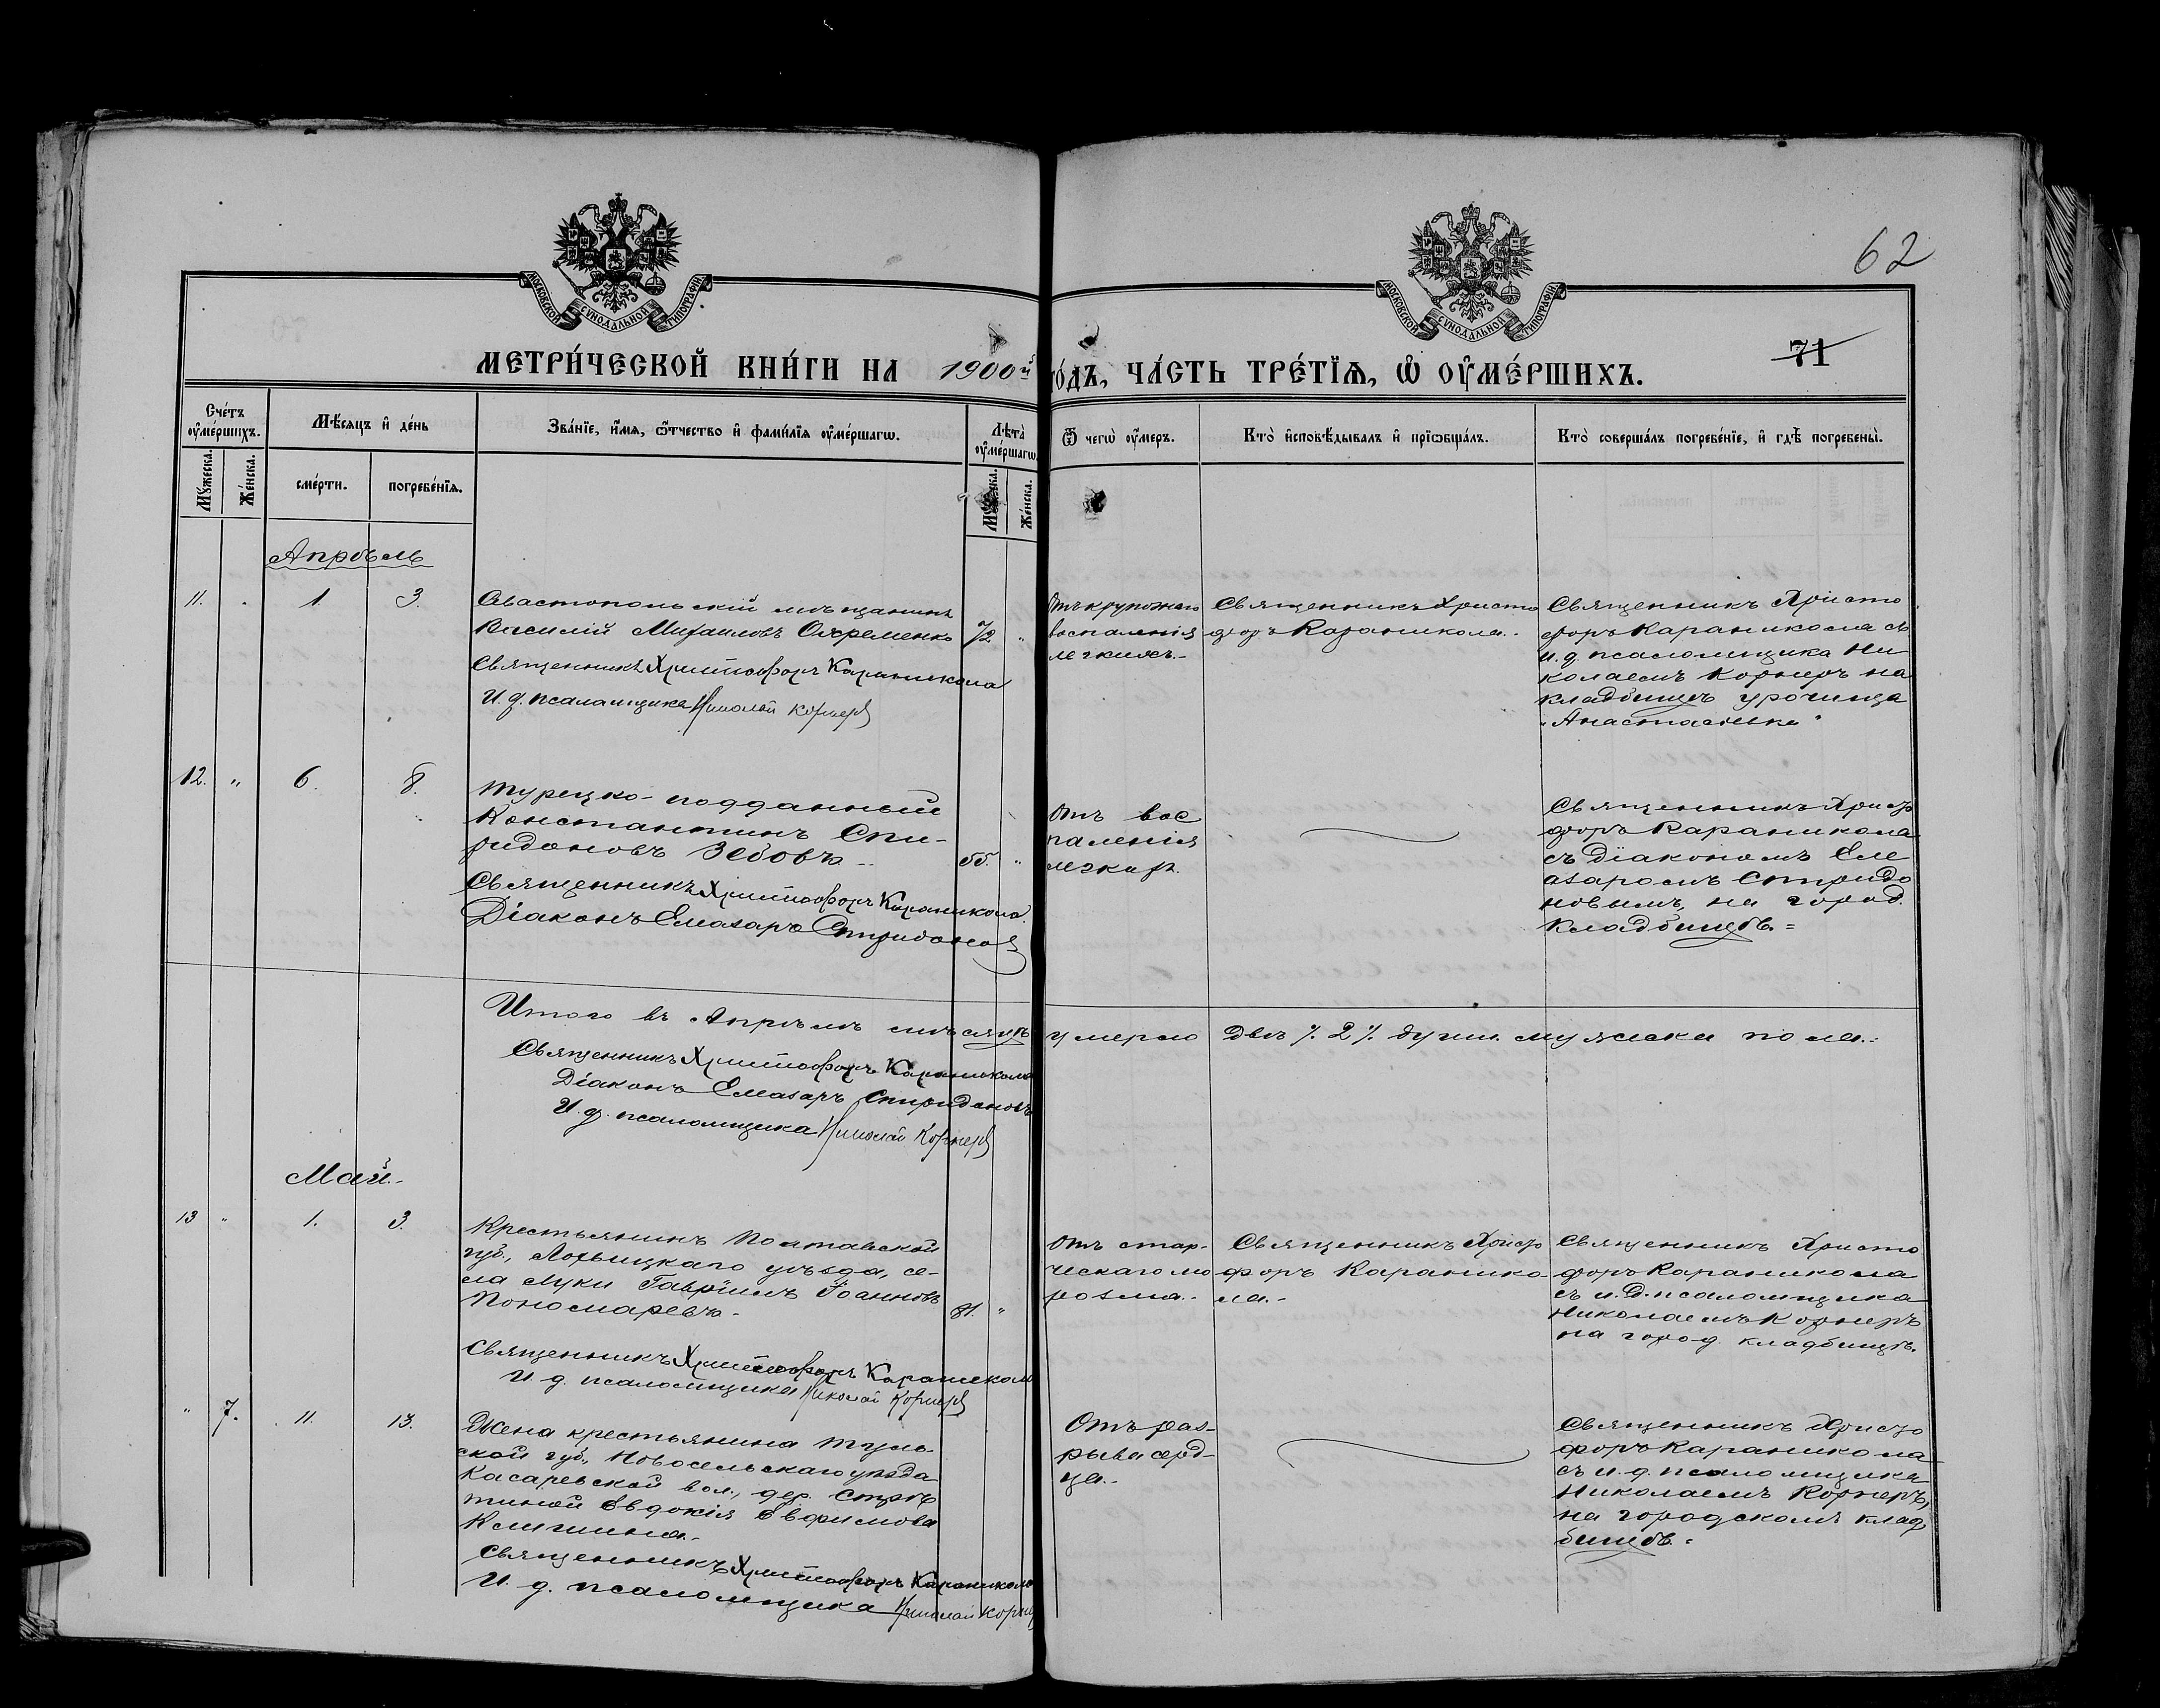 62
МОСКОВСКОЙ СУНОДАЛЬНОЙ ТИПОГРАФІИ
МОСКОВСКОЙ СУНОДАЛЬНОЙ ТИПОГРАФІИ
МЕТРИ́ЧЕСКОЙ КНИ́ГИ НА 1900й го́дъ, ЧА́СТЬ ТРЕ́ТІѦ, Ѡ ОУ҆МЕ́РШИХЪ.
71
Сче́тъ оу҆ме́ршихъ.
Мѣ́сяцъ и҆ де́нь
Зва́нїе, и҆́мѧ, ѻ҆́тчество и҆ фами́лїѧ оу҆ме́ршагѡ.
Лѣта̀ оу҆ме́ршагѡ.
Ѿ чегѡ̀ оу҆́меръ.
Кто̀ и҆сповѣ́дывалъ и҆ прїѡбща́лъ.
Кто̀ соверша́лъ погребе́нїе, и҆ гдѣ̀ погребены̀.
Мꙋ́жеска.
Же́нска.
сме́рти.
погребе́нїѧ.
Мꙋ́жеска.
Же́нска.
Апрѣль
11. 1. 3.
Севастопольскій мѣщанинъ
Василій Михаиловъ Охременко 72 "
Священникъ Христофоръ Караникола
И. д. псаломщика Николай Корнеръ
Отъ крупознаго
воспаленія
легкихъ.-
Священникъ Христо
форъ Караникола.-
Священникъ Христо
форъ Караникола съ
и. д. псаломщика Ни-
колаемъ Корнеръ на
кладбищѣ урочища
"Анастасіевка"
12. " 6. 8.
Турецко-подданный
Константинъ Спи-
ридоновъ Зебовъ.- 55. "
Священникъ Христофоръ Караникола.
Діаконъ Елеазаръ Спиридоновъ
Отъ вос
паленія
легкихъ.
Священникъ Христо
форъ Караникола
съ Діакономъ Еле
азаромъ Спиридо
новымъ, на город.
кладбищѣ.=
Итого въ Апрѣлѣ мѣсяцѣ умерло двѣ /. 2 /. души мужеска пола.:
Священникъ Христофоръ Караникола
Діаконъ Елеазаръ Спиридоновъ
И. д. псаломщика Николай Корнеръ
Май.-
13 " 1. 3.
Крестьянинъ Полтавской
губ., Лохвицкаго уѣзда, се-
ла Луки Гавріилъ Іоанновъ
Пономаревъ.- 81. "
Священникъ Христофоръ Караникола
И. д. псаломщика Николай Корнеръ
Отъ стар-
ческаго ма
разма.-
Священникъ Христо
форъ Карани­ко-
ла.-
Священникъ Христо
форъ Караникола
съ и. д. псаломщика
Николаемъ Корнеръ
на город. кладбищѣ.
" 7. 11. 13.
Жена крестьянина Туль-
ской губ., Новосельскаго уѣзда
Касаревской вол., дер.
Евдокія Евфимова
Священникъ Христофоръ Караникола
И. д. псаломщика Николай Корнеръ
Отъ раз-
рыва серд-
ца.-
Священникъ Христо
форъ Караникола
съ и. д. псаломщика
Николаемъ Корнеръ,
на городскомъ клад
бищѣ.=